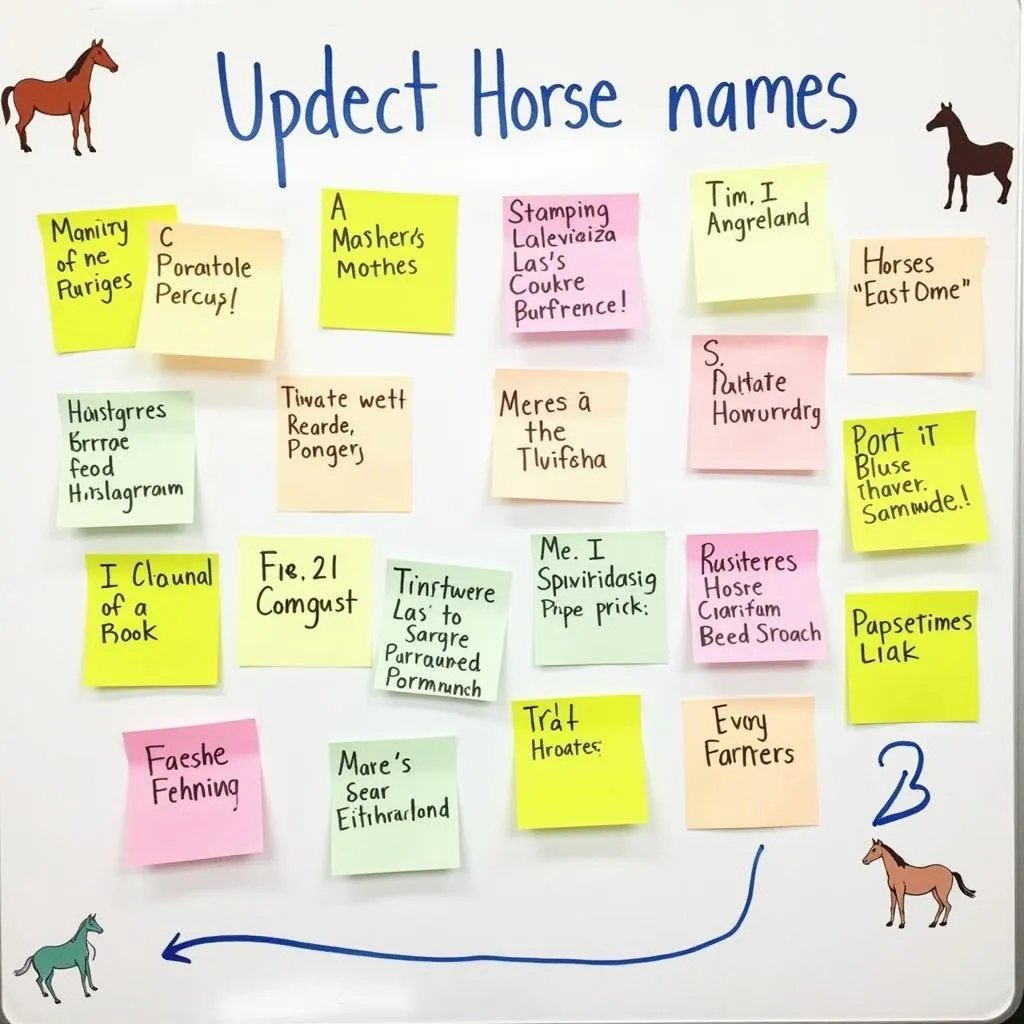 Updect Horse names
Maniiry
of ne
Ruriges
C
Poraitole
Percus!
A
Masher's
mothes
Stamping
Laleviaiza
Las's
Coukre
Burfrence!
Tim, I
Angreland
Horses
"East Ome"
Haistgrres
Brrroe
feod
Hirslagrraım
Tiwate wett
Rearde,
Pongerj
Meres ā
the
Tlvifsha
S.
Paltate
Howurrdrg
Port iT
Bluse
thaver.
Samwude.!
I Clounal
of a
Rook
Fie. 21
Comgust
Tinrtwere
Las' to
Sargre
Parraumed
Pormnunch
Me. I
Spiviridasig
Pripe prick:
Rusiteres
Hosre
Ciarifam
Beed Sroach
Papsetimes
Liak
Faeshe
Fehning
Mare's
Sear
Eitihrarlond
Trat
Hroates
Evoy
Farners
B